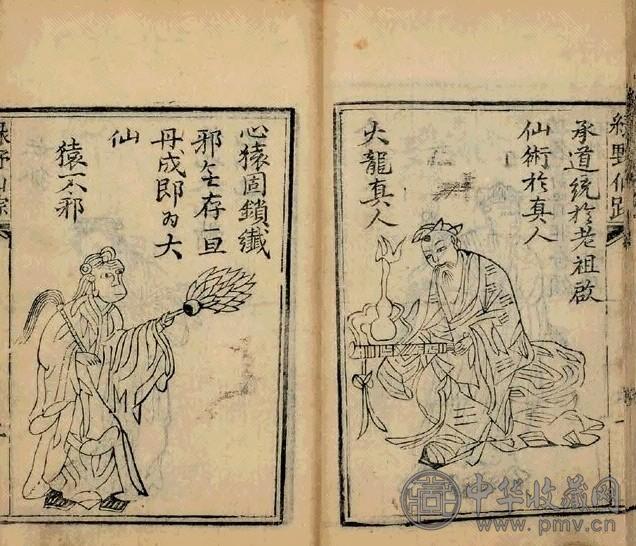 綠野仙踪
承道統於老祖啟
仙術於真人
火龍真人
心猿固鎖纖
邪存一旦
丹成即为大
仙
猿不邪
中华收藏网
www.pmv.cn